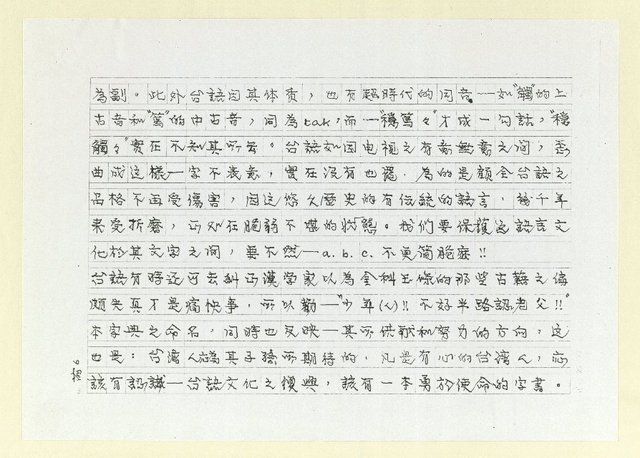 為副。此外台語因其体質，也有超時代的同音—如"觸"的上
古音和"篤"的中古音，同為tak，而一"穩篤々"才成一句話，"穩
觸々"實在不知其所云。台語如因电視之有意無意之間，歪
曲成這樣一字不表意，實在沒有也罷。為的是顧全台語之
品格不再受傷害，因這悠久歷史的有传統的語言，幾千年
來受折磨，已處在脆弱不堪的狀態。我們要保護這語言文
化於其文字之間，要不然—a.b.c.不更簡脆麼!!
台語有時还可去糾正漢学家以為金科玉條的那些古籍之偏
頗失真才是痛快事，所以勸—"少年(人)!! 不好半路認老父!!"
本字典之命名，同時也反映—其所供献和努力的方向，這
也是：台湾人為其子孫所期待的，凡是有心的台湾人，應
該有認識—台語文化之復興，該有一本勇於使命的字書。
高6